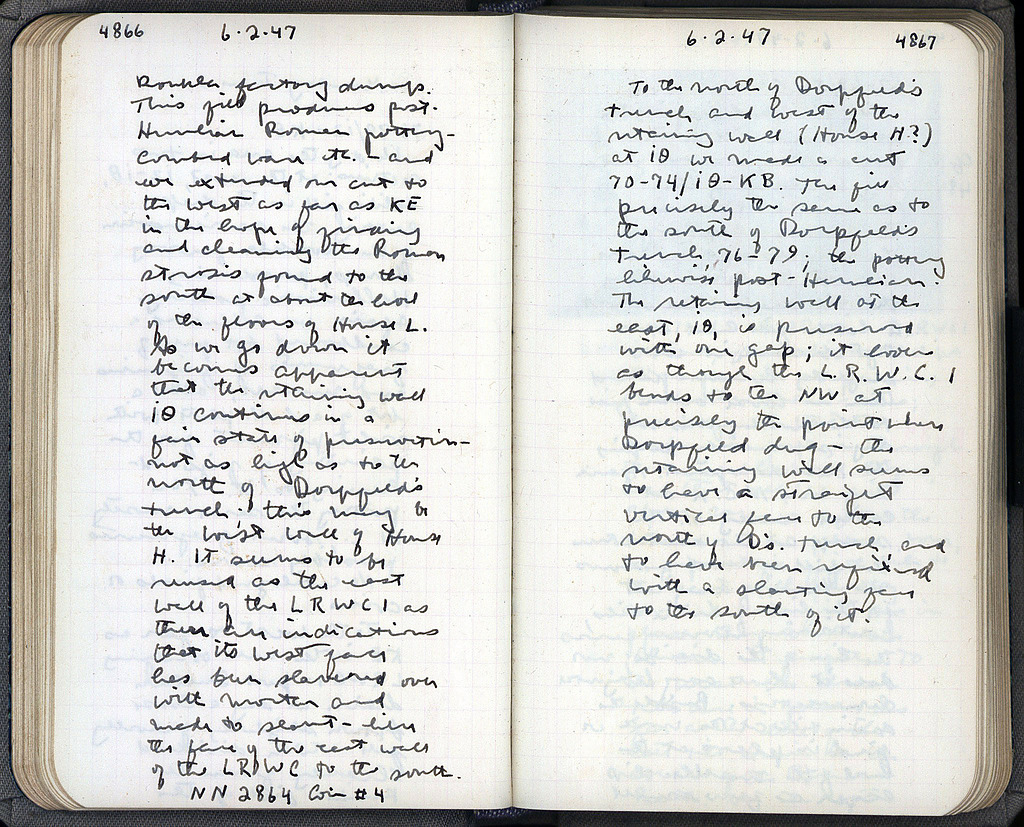 4866 6·2·47
Double factory dumps.
This fill produces post-
Herulian Roman pottery -
combed ware etc. - and
we extended our cut to
the west as far as KE
in the hope of finding
and cleaning the Roman
strosis found to the
south at about the level
of the floors of House L.
As we go down it
becomes apparent
that the retaining wall
ΙΘ continues in a
fair state of preservation -
not as high as to the
north of Dorpfeld's
trench: this may be
the west wall of House
H. It seems to be
reused as the east
wall of the LRWC 1 as
there are indications
that its west face
has been slavered over
with mortar and
made to slant - like
the face of the east wall
of the LRWC to the south.
NN 2864 Coin #4
6·2·47 4867
To the north of Dorpfeld's
trench and west of the
retaining wall (House H?)
at ΙΘ we made a cut
70-74/ΙΘ-ΚΒ. The fill
precisely the same as to
the south of Dorpfeld's
trench, 76-79; the pottery
likewise post-Herulian.
The retaining wall at the
east, ΙΘ, is preserved
with one gap; it looks
as though the L.R.W.C. 1
bends to the NW at
precisely the point where
Dorpfeld dug - the
retaining wall seems
to have a straight
vertical face to the
north of D's. trench, and
to have been refaced
with a slanting face
to the south of it.